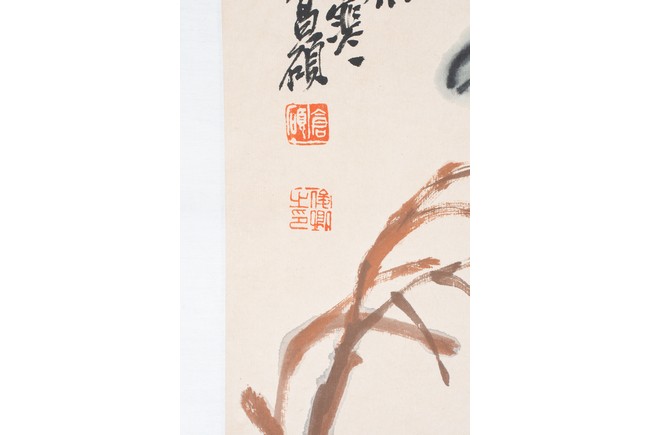 寒
昌碩
倉碩
俊卿之印